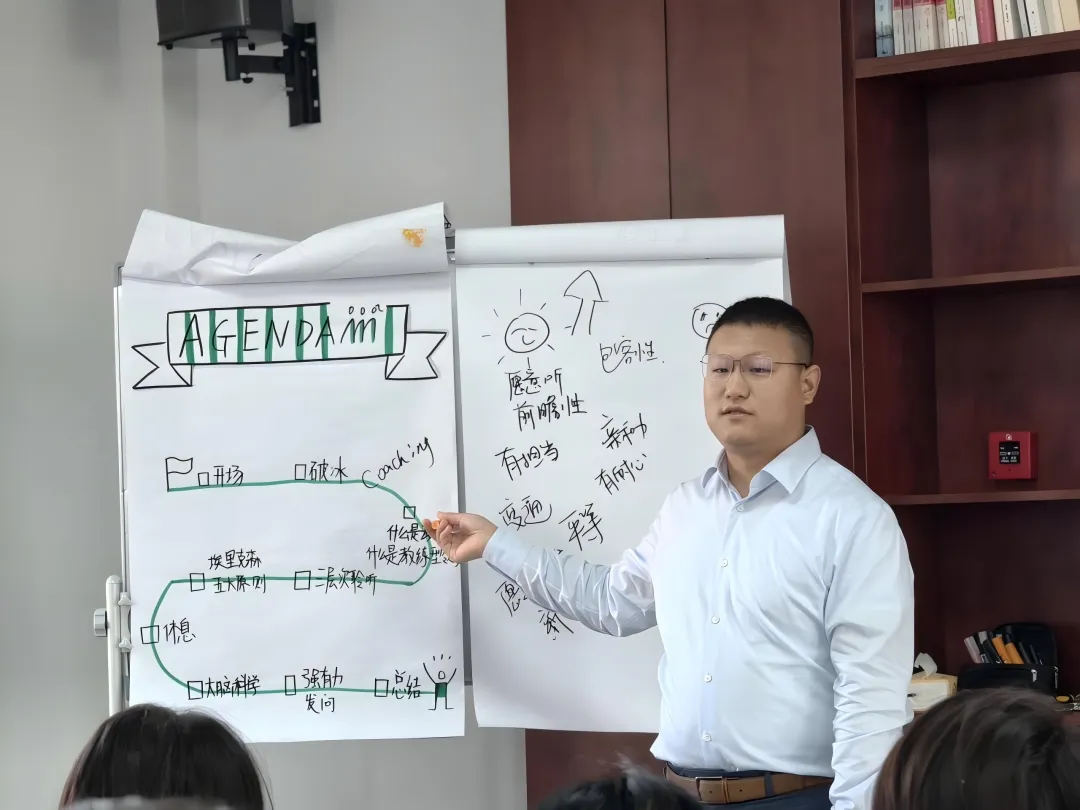 AGENDA
开场
破冰
Coaching
什么是
什么是教练型
三层次聆听
埃里克森
五大原则
休息
大脑科学
强有力
发问
总结
包容性
愿意听
前瞻性
有担当
亲和力
有耐心
变通
平等
愿